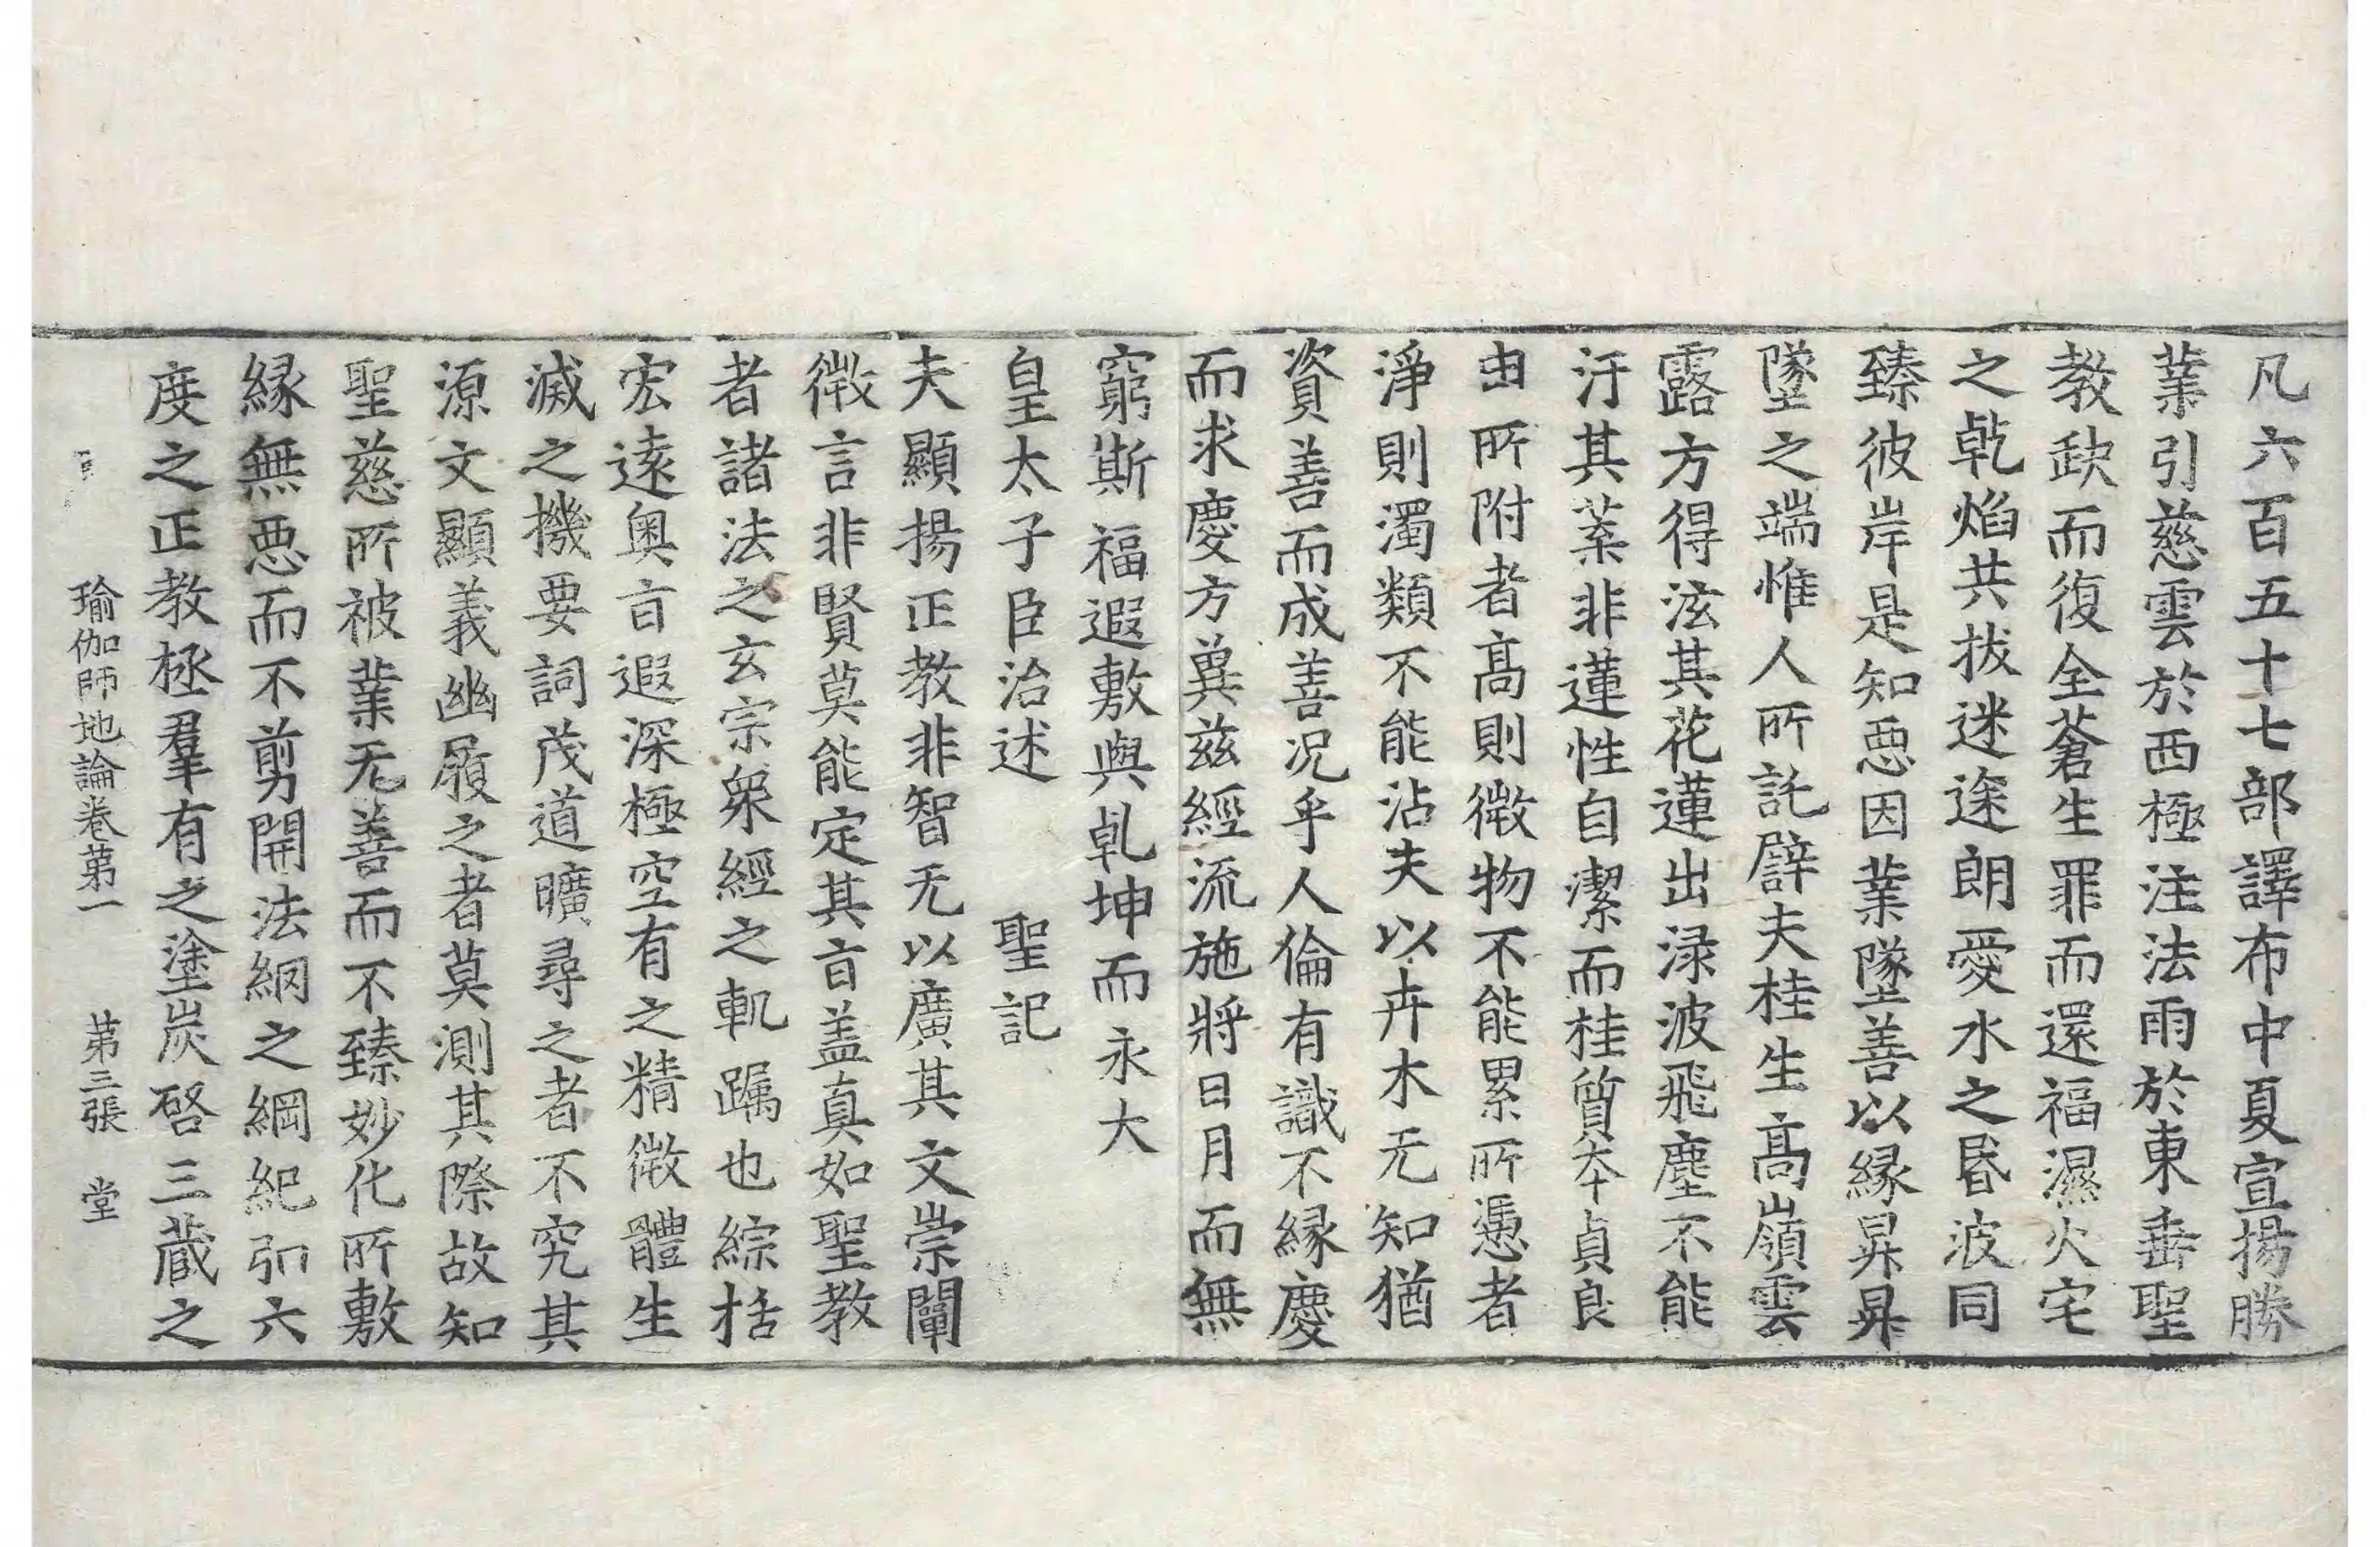 凡六百五十七部譯布中夏宣揚勝
業引慈雲於西極注法雨於東垂聖
教缺而復全蒼生罪而還福濕火宅
之乹焰共拔迷途朗愛水之昬波同
臻彼岸是知惡因業墜善以緣昇昇
墜之端惟人所託譬夫桂生高嶺雲
露方得泫其花蓮出渌波飛塵不能
汙其葉非蓮性自潔而桂質夲貞良
由所附者高則微物不能累所憑者
淨則濁類不能沾夫以卉木无知猶
資善而成善況乎人倫有識不緣慶
而求慶方兾茲經流施將日月而無
窮斯福遐敷與乹坤而永大
皇太子臣治述　聖記
夫顯揚正教非智无以廣其文崇闡
微言非賢莫能定其㫖盖真如聖教
者諸法之玄宗衆經之軌躅也綜括
宏遠奧㫖遐深極空有之精微體生
滅之機要詞茂道曠尋之者不究其
源文顯義幽履之者莫測其際故知
聖慈所被業无善而不臻妙化所敷
緣無惡而不剪開法網之綱紀弘六
度之正教拯羣有之塗炭啓三藏之
瑜伽師地論卷第一　第三張　堂